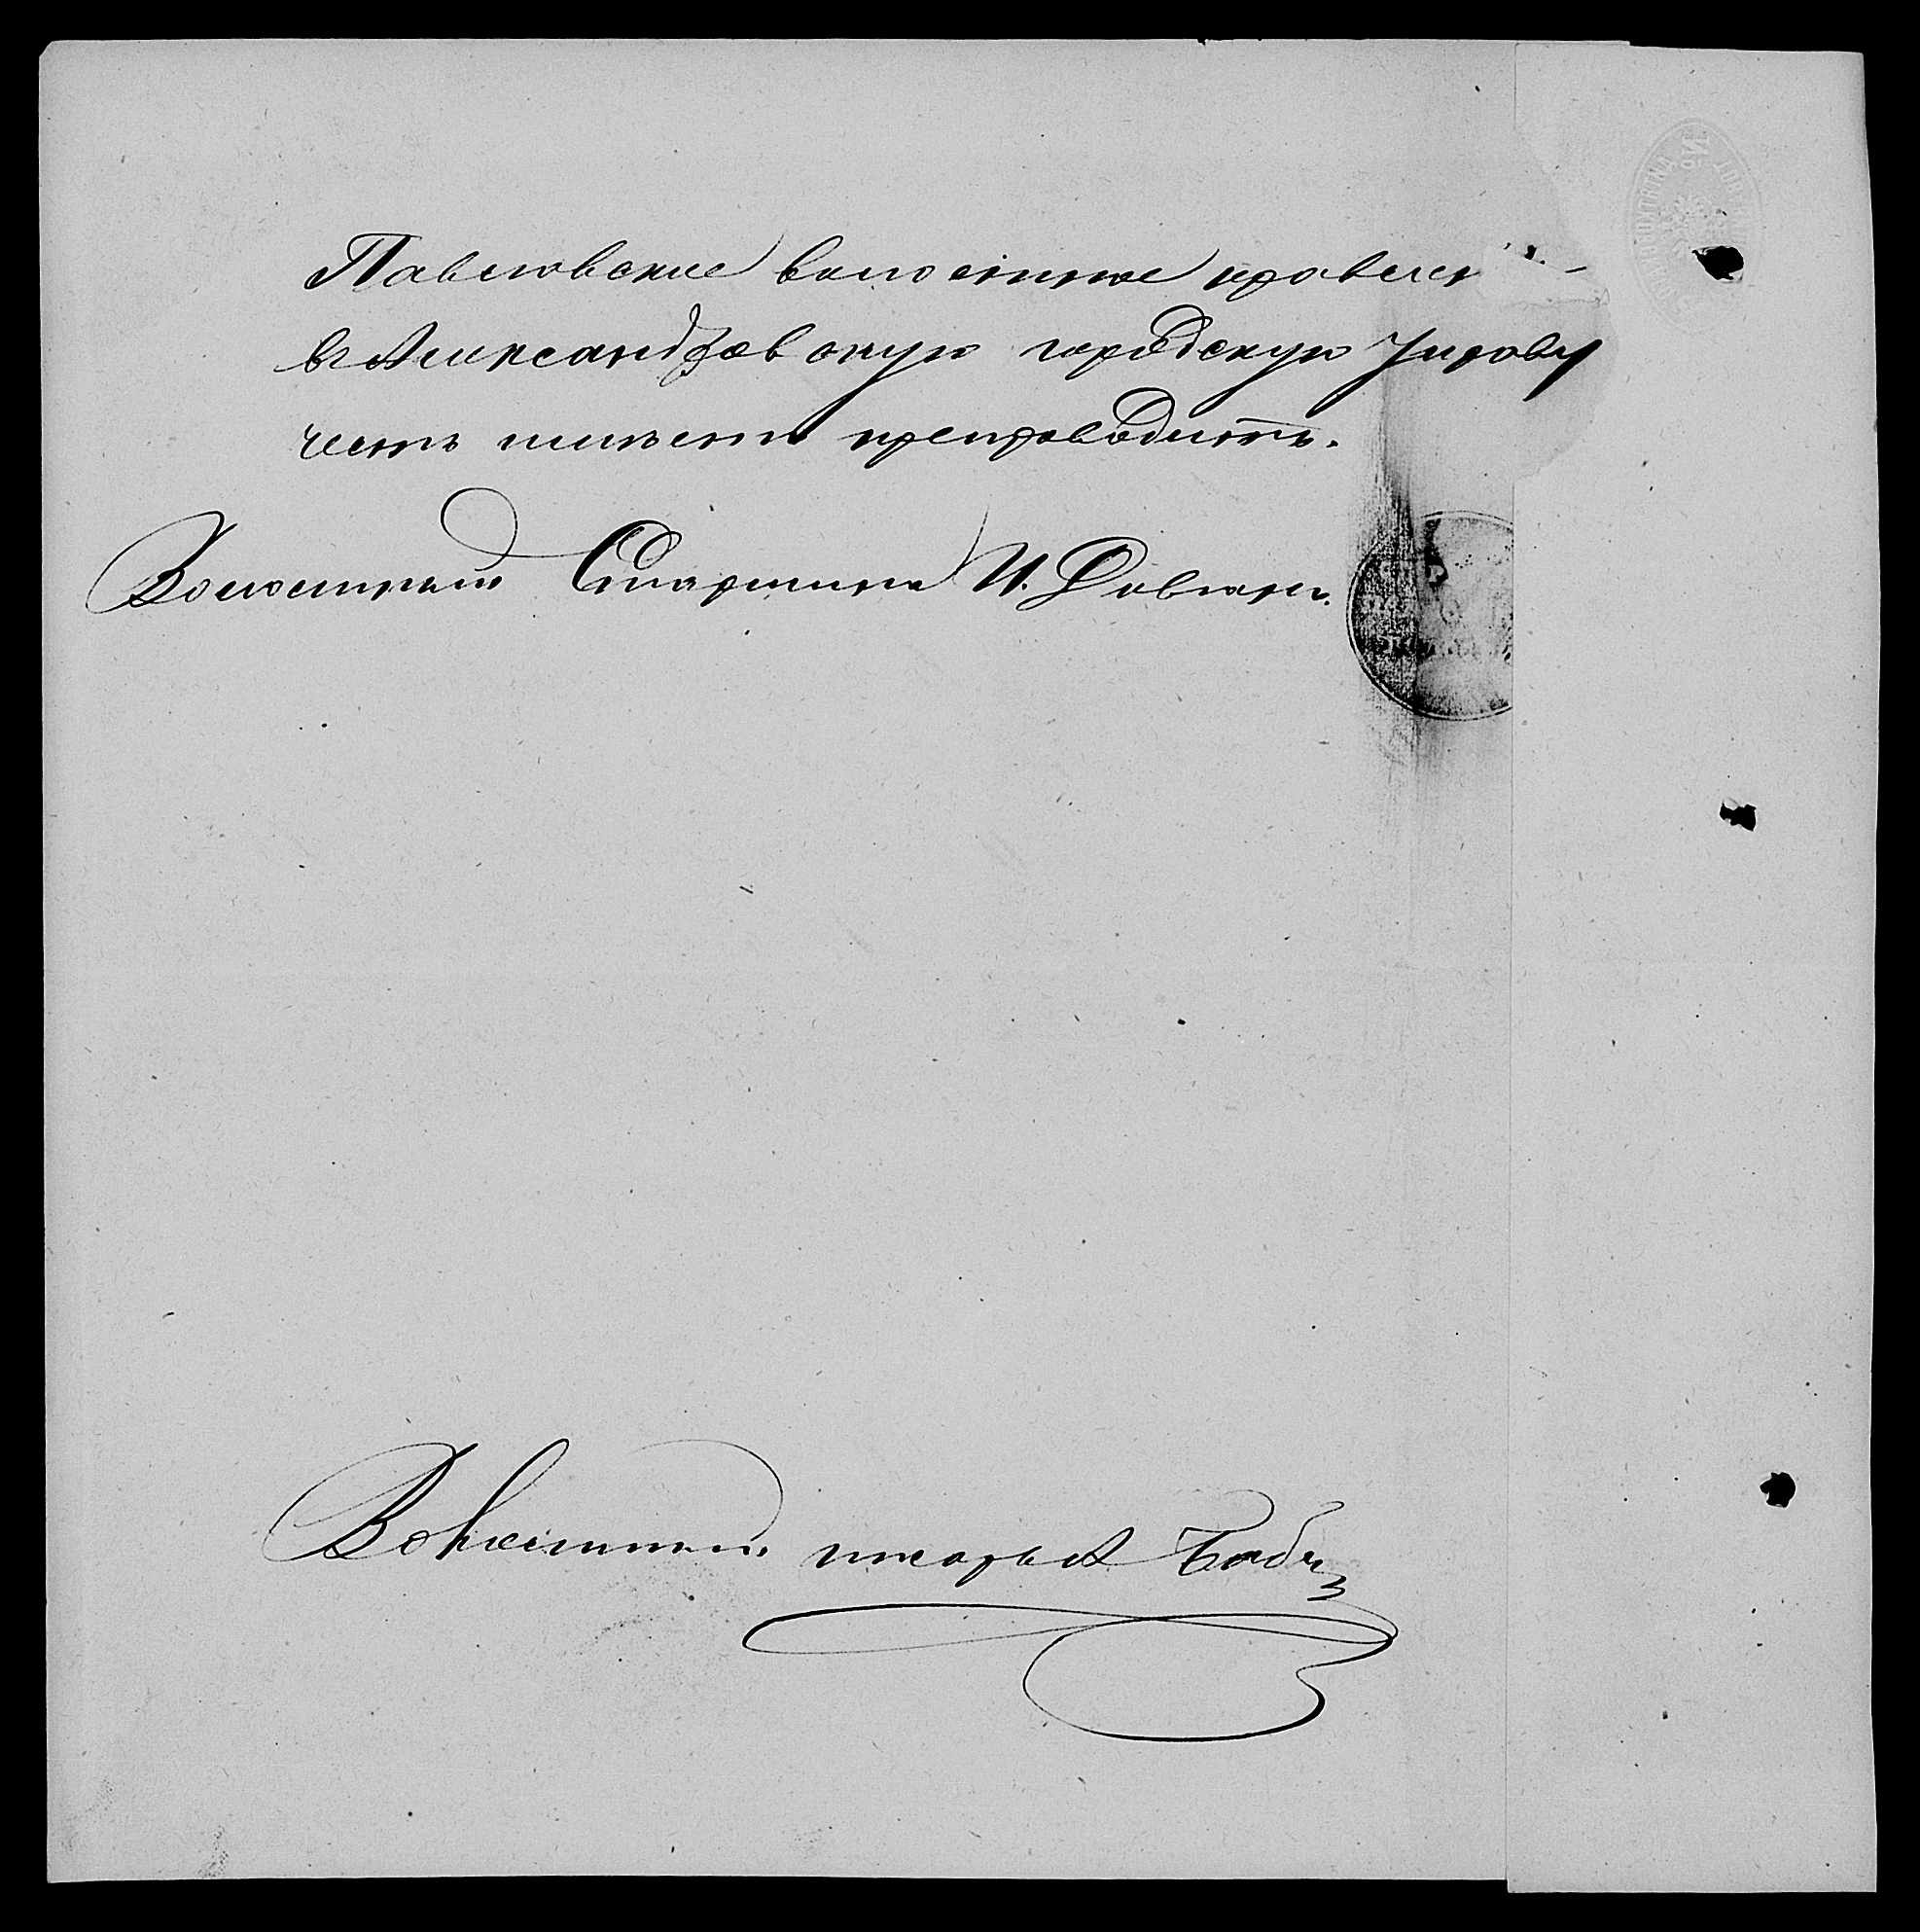 Павловское волостное правлен
въ Александровскую городскую Управу
честь имѣетъ препроводить.
Волостный Старшина И. Довгань.
Волостный писарь А Бабич